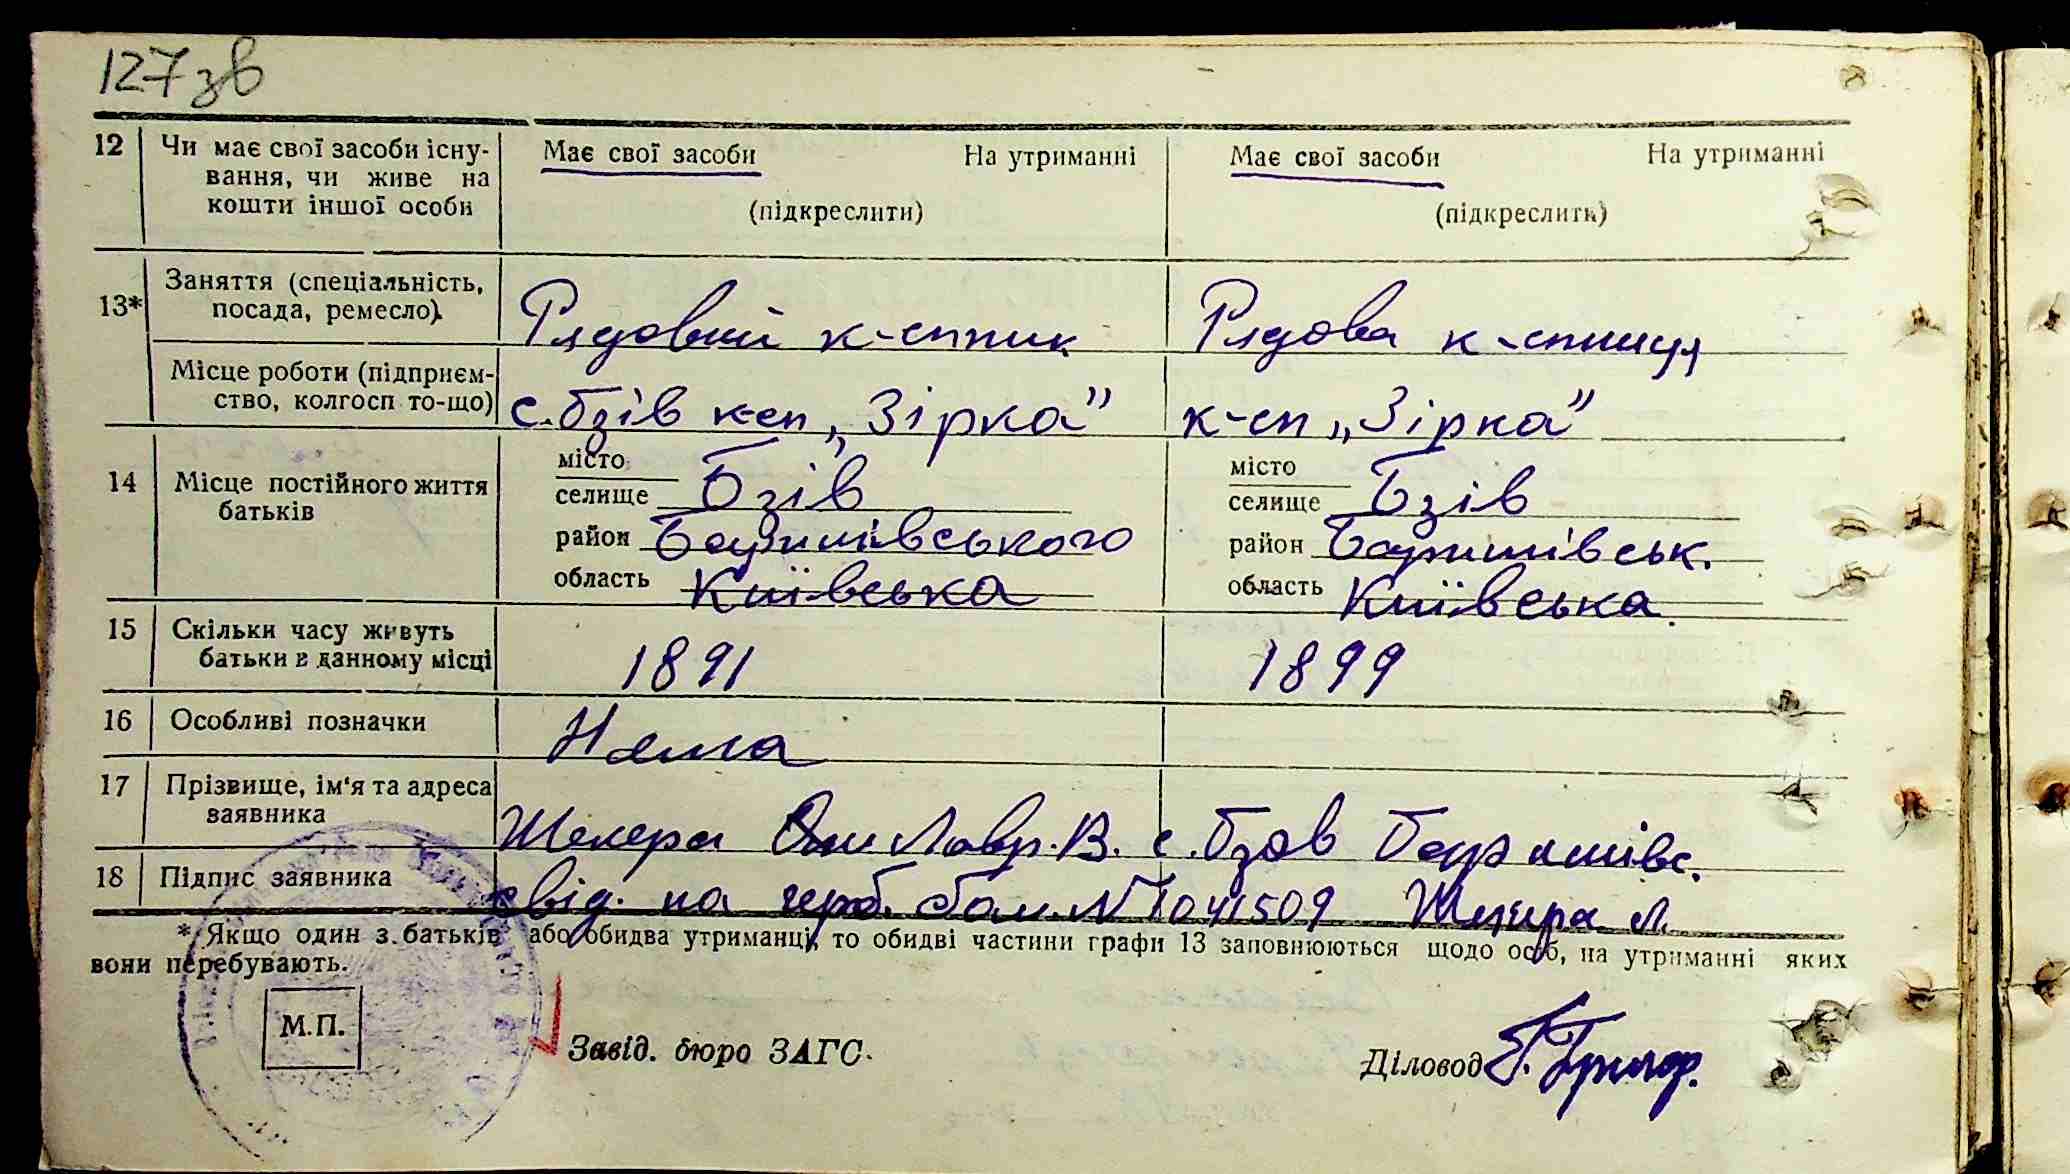 127зв
12 Чи має свої засоби існу- Має свої засоби На утриманні Має свої засоби На утриманні
вання, чи живе на
кошти іншої особи (підкреслити) (підкреслить)
13* Заняття (спеціальність, посада, ремесло). Рядовий к-спник Рядова к-спниця
Місце роботи (підприєм-
ство, колгосп то-що) с. Бзів к-сп „Зірка" к-сп „Зірка"
місто місто
14 Місце постійного життя селище Бзів селище Бзів
батьків район Баришівського район Баришівськ.
область Київська область Київська
15 Скільки часу живуть
батьки в данному місці 1891 1899
16 Особливі позначки Нема
17 Прізвище, ім'я та адреса
заявника Шекера Лавр. В. с. Бзов Баришівс.
18 Підпис заявника свід. на герб. бом. № 1041509 Шекера Л.
* Якщо один з батьків або обидва утриманці, то обидві частини графи 13 заповнюються щодо осіб, на утриманні яких
вони перебувають.
М.П.
Завід. бюро ЗАГС. Діловод